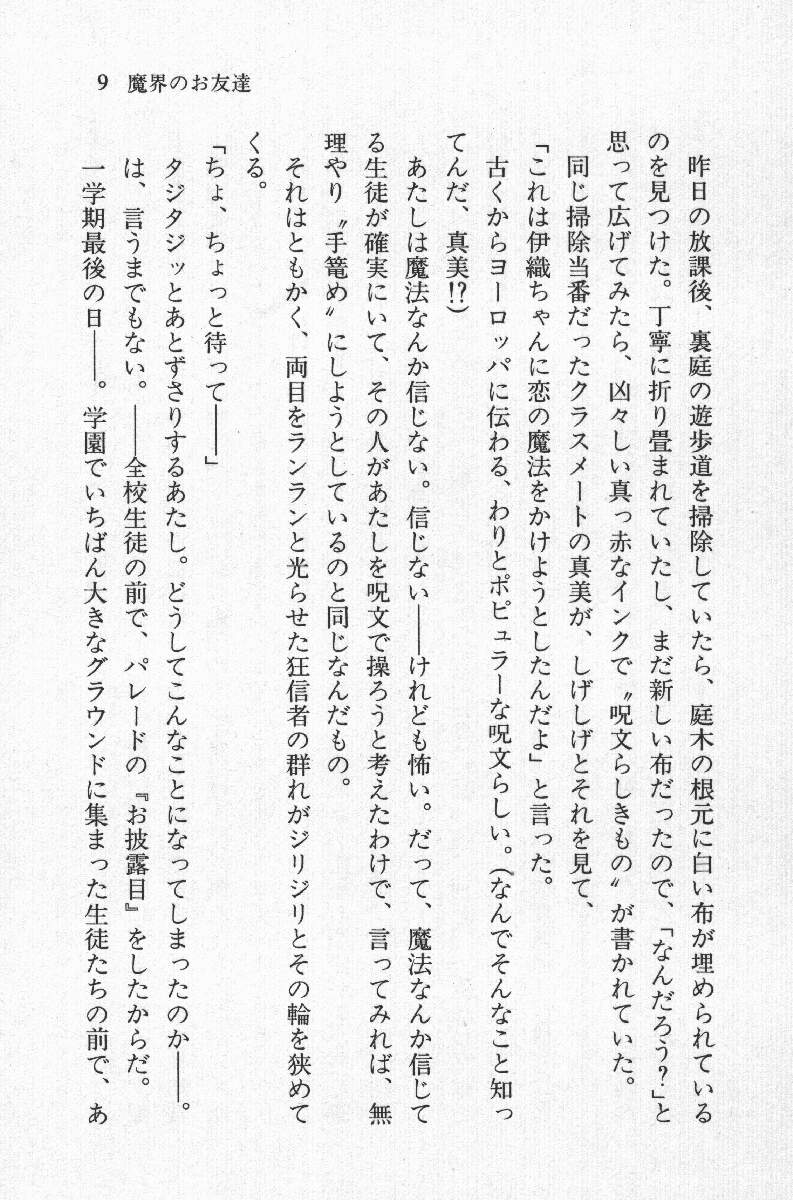 9 魔界のお友達
昨日の放課後、裏庭の遊歩道を掃除していたら、庭木の根元に白い布が埋められている
のを見つけた。丁寧に折り畳まれていたし、まだ新しい布だったので、「なんだろう?」と
思って広げてみたら、凶々しい真っ赤なインクで〝呪文らしきもの〟が書かれていた。
同じ掃除当番だったクラスメートの真美が、しげしげとそれを見て、
「これは伊織ちゃんに恋の魔法をかけようとしたんだよ」と言った。
古くからヨーロッパに伝わる、わりとポピュラーな呪文らしい。(なんでそんなこと知っ
てんだ、真美!?)
あたしは魔法なんか信じない。信じない――けれども怖い。だって、魔法なんか信じて
る生徒が確実にいて、その人があたしを呪文で操ろうと考えたわけで、言ってみれば、無
理やり〝手篭め〟にしようとしているのと同じなんだもの。
それはともかく、両目をランランと光らせた狂信者の群れがジリジリとその輪を狭めて
くる。
「ちょ、ちょっと待って――」
タジタジッとあとずさりするあたし。どうしてこんなことになってしまったのか――。
は、言うまでもない。――全校生徒の前で、パレードの『お披露目』をしたからだ。
一学期最後の日――。学園でいちばん大きなグラウンドに集まった生徒たちの前で、あ